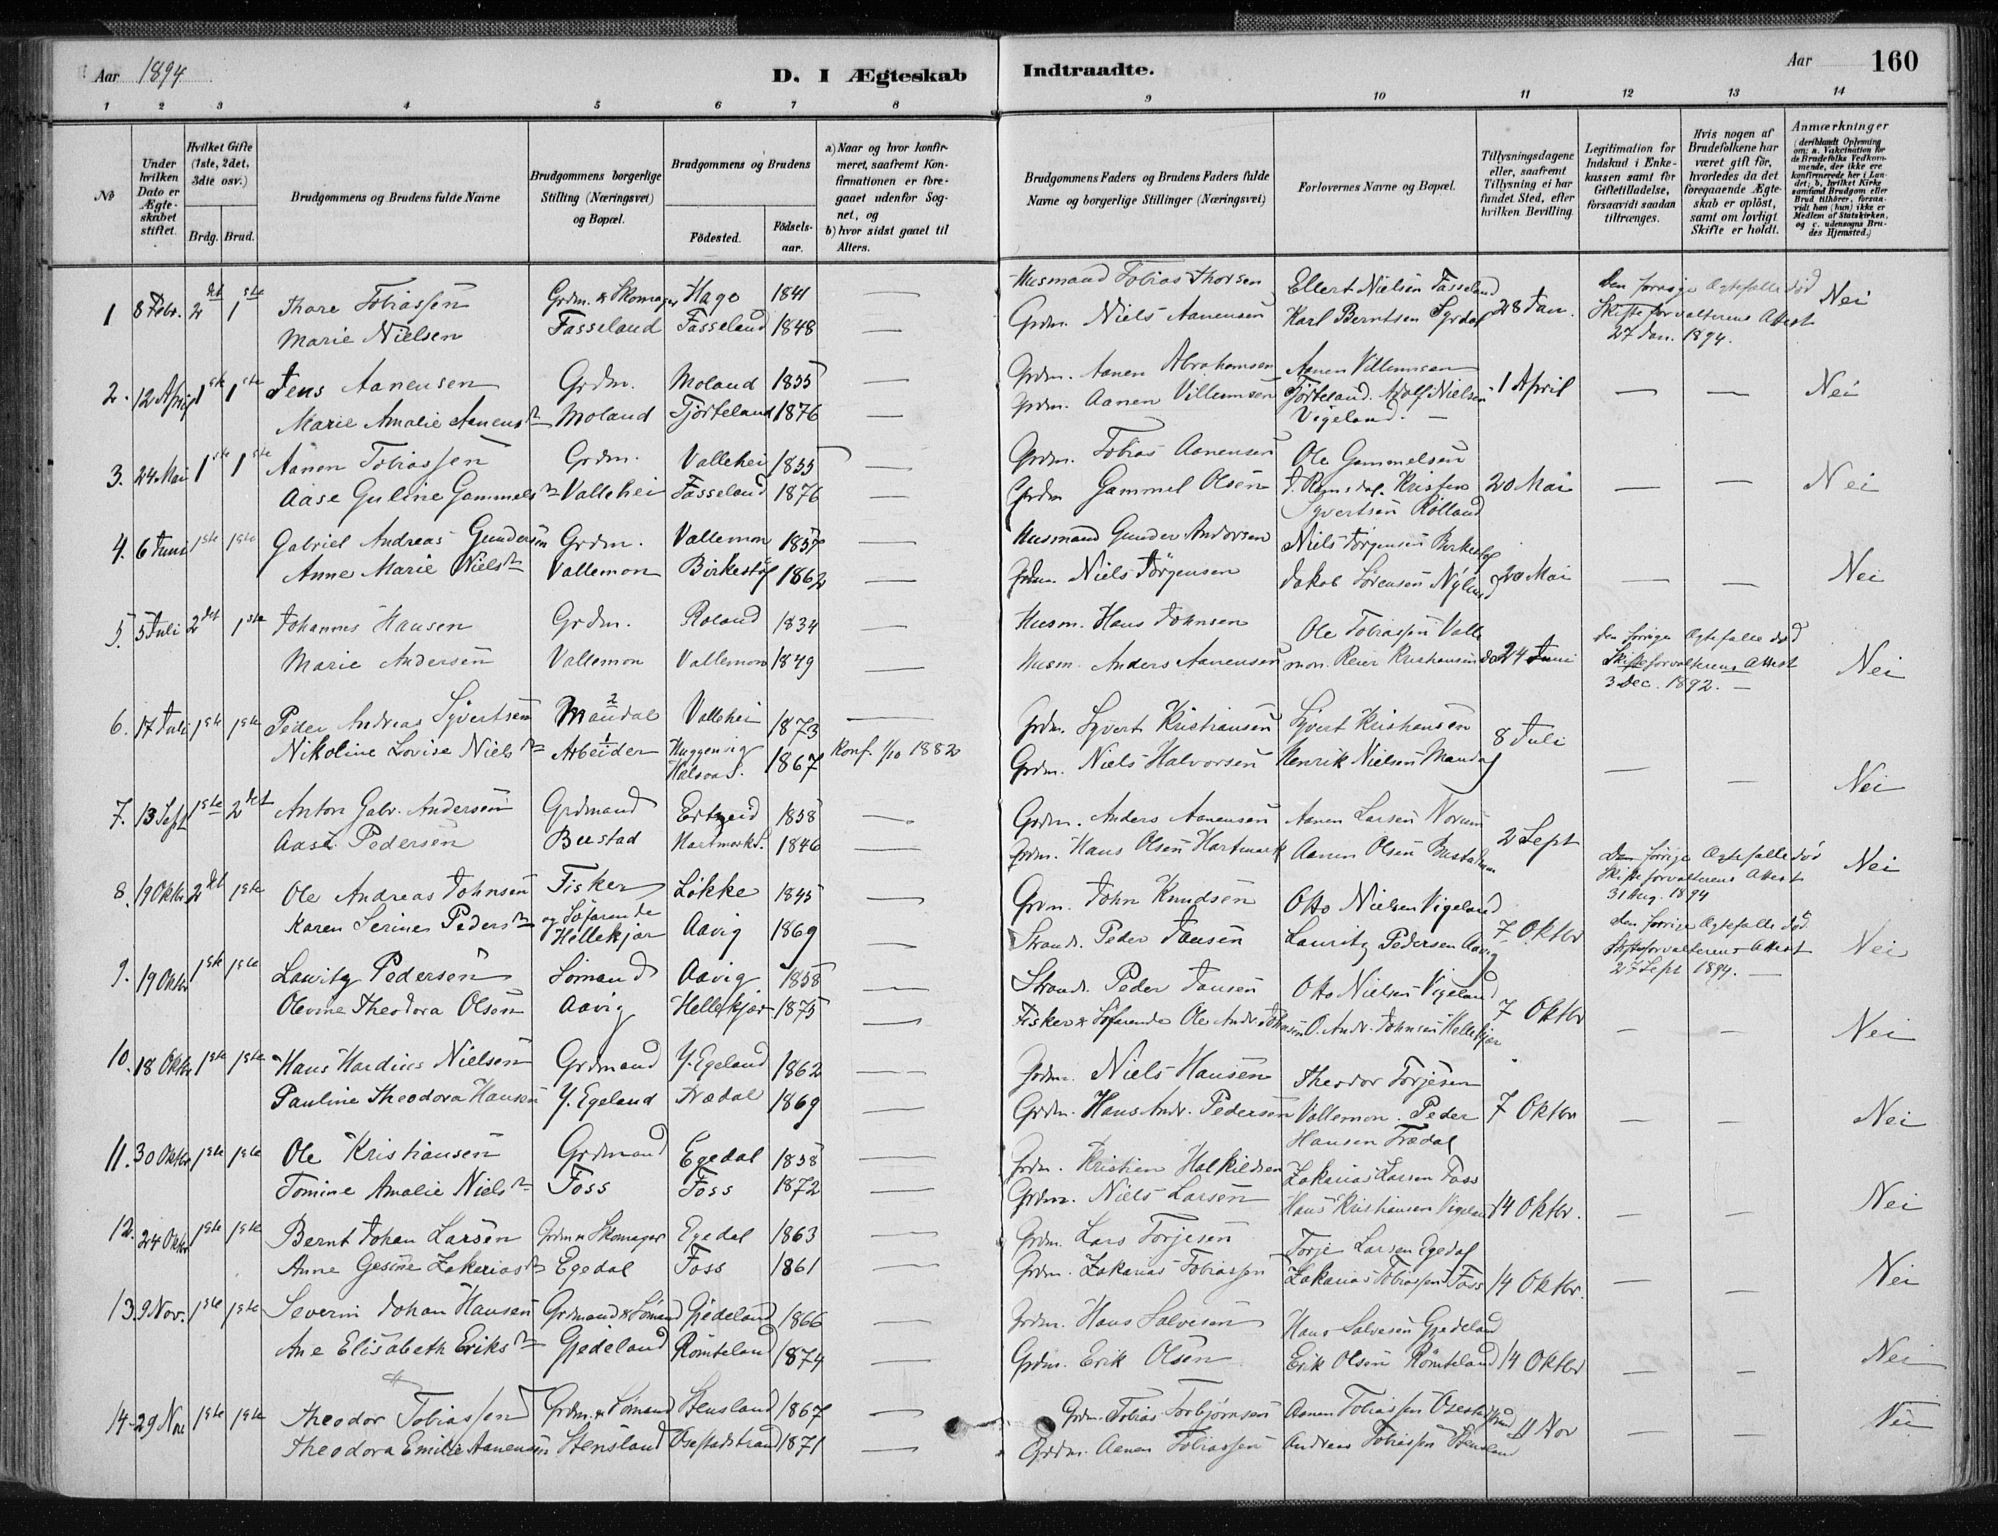 Aar 1894
D. I Ægteskab Indtraadte.
Aar
160
1 2 3 4 5 6 7 8 9 10 11 12 13 14
No
Under hvilken Dato er Ægteskabet stiftet.
Hvilket Gifte (1ste, 2det, 3die osv.)
Brdg. Brud.
Brudgommens og Brudens fulde Navne
Brudgommens borgerlige Stilling (Næringsvei) og Bopæl.
Brudgommens og Brudens
Fødested.
Fødselsaar.
a) Naar og hvor konfirmeret, saafremt Konfirmationen er foregaaet udenfor Sognet, og
b) hvor sidst gaaet til Alters.
Brudgommens Faders og Brudens Faders fulde Navne og borgerlige Stillinger (Næringsvei)
Forlovernes Navne og Bopæl.
Tillysningsdagene eller, saafremt Tillysning ei har fundet Sted, efter hvilken Bevilling.
Legitimation for Indskud i Enkekassen samt for Giftetilladelse, forsaavidt saadan tiltrænges.
Hvis nogen af Brudefolkene har været gift før, hvorledes da det foregaaende Ægteskab er opløst, samt om lovligt Skifte er holdt.
Anmærkninger (deriblandt Oplysning om: a. Vakcination for de Brudefolks Vedkommende, der ikke ere konfirmerede her i Landet; b. hvilket Kirkesamfund Brudgom eller Brud tilhører, forsaavidt han (hun) ikke er Medlem af Statskirken, og c. udensogns Brudes Hjemsted.)
1 8 Febr. 2det 1ste Thore Tobiassen Grdm. & Skomager Hage 1841 — Husmand Tobias Thorsen Ellert Nielsen Fasseland 28 Jan. Den forrige Ægtefælle død Nei
Marie Nielsen Fasseland Fasseland 1848 — Grdm. Niels Aanensen Karl Berntsen Syrdal Skifteforvalterens Attest
27 Jan. 1894.
2. 12 April 1ste 1ste Jens Aanensen Grdm. Moland 1855 — Grdm. Aanen Abrahamsen Aanen Villumsen 1 April — — Nei
Marie Amalie Aanensdr Moland Tjörteland 1876 — Grdm. Aanen Villumsen Tjörteland. Adolf Nielsen
Vigeland. —
3. 24 Mai 1ste 1ste Aanen Tobiassen Grdm. Vallehei 1855 — Grdm. Tobias Aanensen Ole Gammelsen 20 Mai — — Nei
Aase Guline Gammelsdr Vallehei Fasseland 1876 — Grdm Gammel Olsen Ramsdal. Kristen
Syvertsen Rölland
4. 6 Juni 1ste 1ste Gabriel Andreas Gundersen Grdm. Vallemon 1857 — Husmand Gunder Andersen Niels Jörgensen Birkestöl
Anne Marie Nielsdr Vallemon Birkestöl 1862 — Grdm Niels Jörgensen Jakob Sörensen Nylund 20 Mai — — Nei
5. 5 Juli 2det 1ste Johannes Hansen Grdm. Roland 1834 — Husm. Hans Johnsen Ole Tobiassen Valle
Marie Andersen Vallemon Vallemon 1849 — Husm. Anders Aanensen mon. Reier Kristiansen 24 Juni Den forrige Ægtefælle død Nei
Skifteforvalterens Attest
3 Dec. 1892. —
6. 17 Juli 1ste 1ste Peder Andreas Syvertsen Mandal Vallehei 1873 — Grdm. Syvert Kristiansen Syvert Kristiansen 8 Juli
Nikoline Lovise Nielsdr Arbeider Huggenvig Halsaa S. 1867 Konf. 1/10 1882 Grdm. Niels Halvorsen Henrik Nielsen Mandal — — Nei
7. 13 Sept 1ste 2det Anton Gabr. Andersen Grdmand Ertzeid 1858 — Grdm. Anders Aanensen Aanen Larsen Norum 2 Sept
Aase Pedersen Bustad Hartmark S. 1846 — Grdm. Hans Olsen Hartmark Aanen Olsen Den forrige Ægtefælle død Nei
Skifteforvalterens Attest
31 Aug. 1894
8. 19 Oktbr 2det 1ste Ole Andreas Johnsen Fisker Lökke 1845 — Grdm. John Knudsen Otto Nielsen Vigeland 7 Oktbr Den forrige Ægtefælle død.
Karen Serine Pedersdr og Söfarende Hellekjær Aavig 1869 — Strands. Peder Jansen Lauritz Pedersen Aavig Skifteforvalterens Attest Nei
27 Sept 1894. —
9. 19 Oktbr 1ste 1ste Lauritz Pedersen Sömand Aavig 1858 — Strands. Peder Jansen Otto Nielsen Vigeland 7 Oktbr
Olevine Theodora Olsen Aavig Hellekjær 1875 — Fisker & Söfarende Ole Andr. Johnsen O. Andr. Johnsen Hellekjær — — Nei
10. 18 Oktbr 1ste 1ste Hans Hardius Nielsen Grdmand Y. Egeland 1862 — Grdm. Niels Hansen Theodor Torjesen
Pauline Theodora Hansen Y. Egeland Trædal 1869 — Grdm. Hans Andr. Pedersen Vallemon. Peder 7 Oktbr — — Nei
Hansen Trædal
11. 30 Oktbr 1ste 1ste Ole Kristiansen Grdmand Egedal 1858 — Grdm. Kristien Halkildsen Zakarias Larsen Foss
Tomine Amalie Nielsdr Foss Foss 1872 — Grdm. Niels Larsen Hans Kristiansen Vigeland 14 Oktbr. — — Nei
12. 24 Oktbr 1ste 1ste Bernt Johan Larsen Grdm & Skomager Egedal 1863 — Grdm. Lars Torjesen Torje Larsen Egedal
Anne Gesine Zakariasdr Egedal Foss 1861 — Grdm. Zakarias Tobiassen Zakarias Tobiassen Foss 14 Oktbr. — — Nei
13. 9 Nov. 1ste 1ste Severin Johan Hansen Grdmand & Sömand Gjedeland 1866 — Grdm. Hans Salvesen Hans Salvesen Gjedeland
Ane Elisabeth Eriksdr Gjedeland Römteland 1874 — Grdm. Erik Olsen Erik Olsen Römteland 14 Oktbr — — Nei
14. 29 Nov 1ste 1ste Theodor Tobiassen Grdm. & Sömand Stensland 1867 — Grdm. Tobias Torbjörnsen Aanen Tobiassen Osestadstrand 11 Nov — — Nei
Theodora Emilie Aanensen Stensland Osestadstrand 1871 — Grdm. Aanen Tobiassen Andreas Tobiassen Stensland